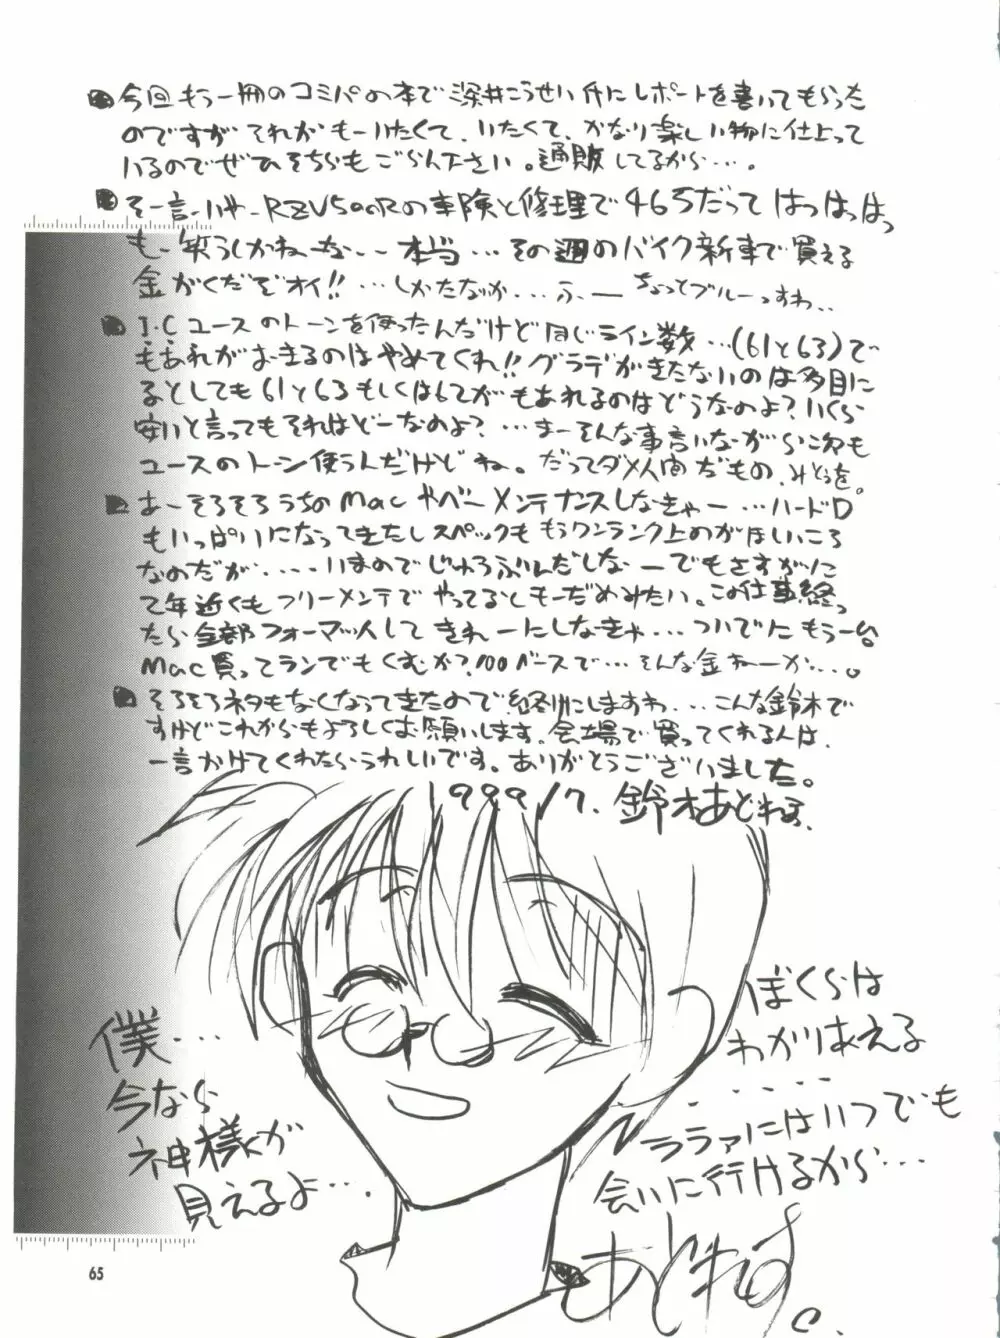 今回もう一冊のコミパの本で深井こうせい氏にレポートを書いてもらった
のですが それがもーいたくて、いたくて、かなり楽しい物に仕上って
いるのでぜひそちらもごらん下さい。通販してるから‥‥。
そー言-いや-RZV500Rの車険と修理で465だって はっはっはっ
もー笑うしかねーな‥‥本当‥‥その週のバイク新車で買える
金がくだぞオイ!! ‥‥しかたなか‥‥ふー ちょっとブルーっすわ‥
I・Cユースのトーンを使ったんだけど同じライン数‥‥(61と63)で
もあれがおきるのはやめてくれ!! グラデがきたないのは多目に
るとしても61と63もしくは62がもあれるのはどうなのよ?いくら
安いと言ってもそれはどーなのよ?‥‥まーそんな事言いながら次も
ユースのトーン使うんだけどね。だってダメ人間だもの、みとぅを。
あーそろそろうちのMacやべーメンテナンスしなきゃー‥‥ハードD
もいっぱいになってきたしスペックももうワンランク上のがほしいころ
なのだが‥‥‥いまのでじゅうぶんだしなーでもさすがに
2年近くもフリーメンテでやってるともーだめみたい。この仕事終っ
たら全部フォーマット人してきれーにしなきゃ‥‥ついでにもう一台
Mac買ってランでもくむか?100ベースで‥‥そんな金ねーか‥‥。
そろそろネタもなくなってきたので終りにしますわ‥‥こんな鈴木で
すけどこれからもよろしくお願いします。会場で買ってくれる人は、
一言かけてくれたらうれしいです。ありがとうございました。
1999/7. 鈴木あどねす.
ぼくらは
わかりあえる
‥‥‥
ララァにはいつでも
会いに行けるから‥‥
僕‥‥
今なら
神様が
見えるよ‥‥
あどねす。
65